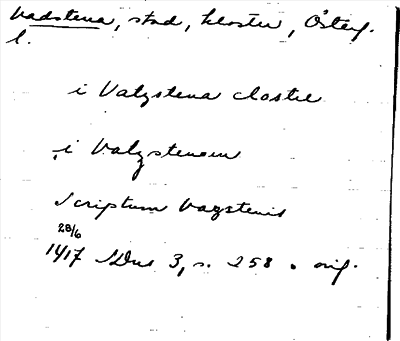 Vadstena, stad, kloster, Österg.
l.
i Valzstena clostre
i Valzstenom
Scriptum Vazstenis
28/6
1417 SDns 3, s. 258 . orig.